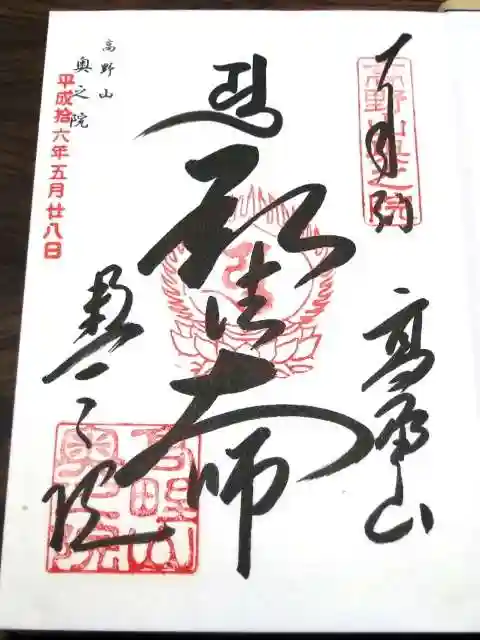 高野山奥之院
高野山
弘法大師
高野山
奥之院
平成拾六年五月廿八日
奥之院
高野山
奥之院